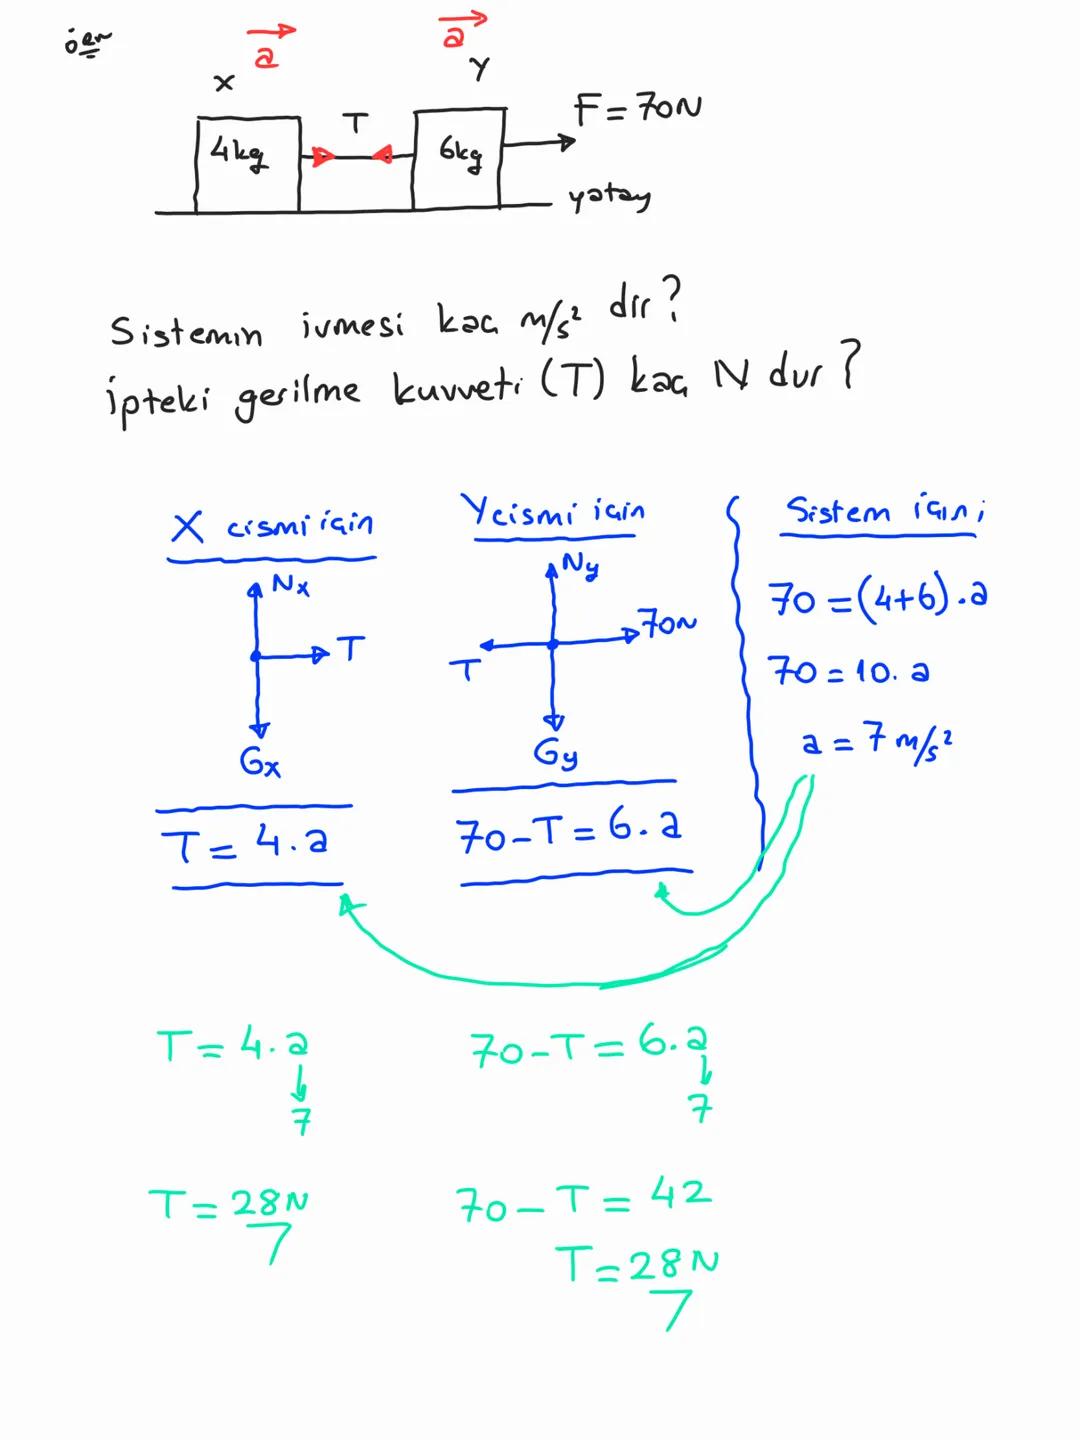 örn
a
a
X
Y
4kg
T
6kg
F=70N
yatay
Sistemin ivmesi kaç m/s² dir?
ipteki gerilme kuvveti (T) kaç N dur?
X cismi için
Nx
T
Gx
T = 4.a
Y cismi için
Ny
70N
T
Gy
70-T = 6.a
Sistem için;
70 = (4+6).a
70 = 10.a
a = 7 m/s²
T = 4.a
7
T = 28N
70-T = 6.a
7
70-T = 42
T = 28N